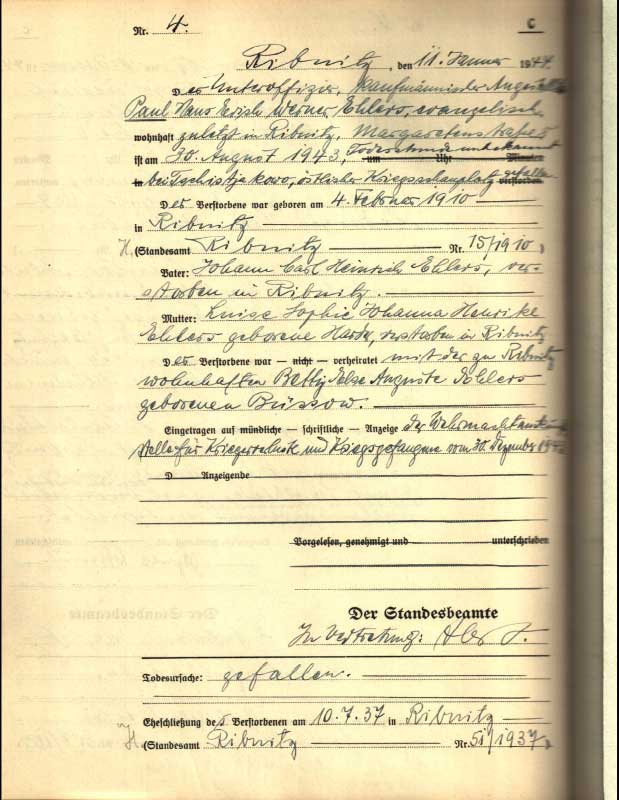 Nr. 4. C
Ribnitz, den 11. Januar 1944
Der Unteroffizier, kaufmännischer Angestellte
Paul Hans Erich Werner Ehlers, evangelisch,
wohnhaft zuletzt in Ribnitz, Margaretenstraße
ist am 30. August 1943, Todesstunde unbekannt um Uhr Minuten
in bei Tschistjakowo, östlicher Kriegsschauplatz gefallen verstorben
Der Verstorbene war geboren am 4. Februar 1910
in Ribnitz
H. (Standesamt Ribnitz Nr. 15/1910)
Vater: Johann Carl Heinrich Ehlers, ver-
storben in Ribnitz.
Mutter: Luise Sophie Johanna Henrike
Ehlers geborene Harder, verstorben in Ribnitz
Der Verstorbene war — nicht — verheiratet mit der zu Ribnitz
wohnhaften Betty Else Auguste Ehlers
geborenen Büssow.
Eingetragen auf mündliche — schriftliche — Anzeige der Wehrmachtauskunft-
stelle für Kriegerverluste und Kriegsgefangene vom 30. Dezember 1943
D Anzeigende
Vorgelesen, genehmigt und unterschrieben
Der Standesbeamte
In Vertretung:
Todesursache: gefallen.
Eheschließung des Verstorbenen am 10.7.37 in Ribnitz
H. (Standesamt Ribnitz Nr. 51/1937)